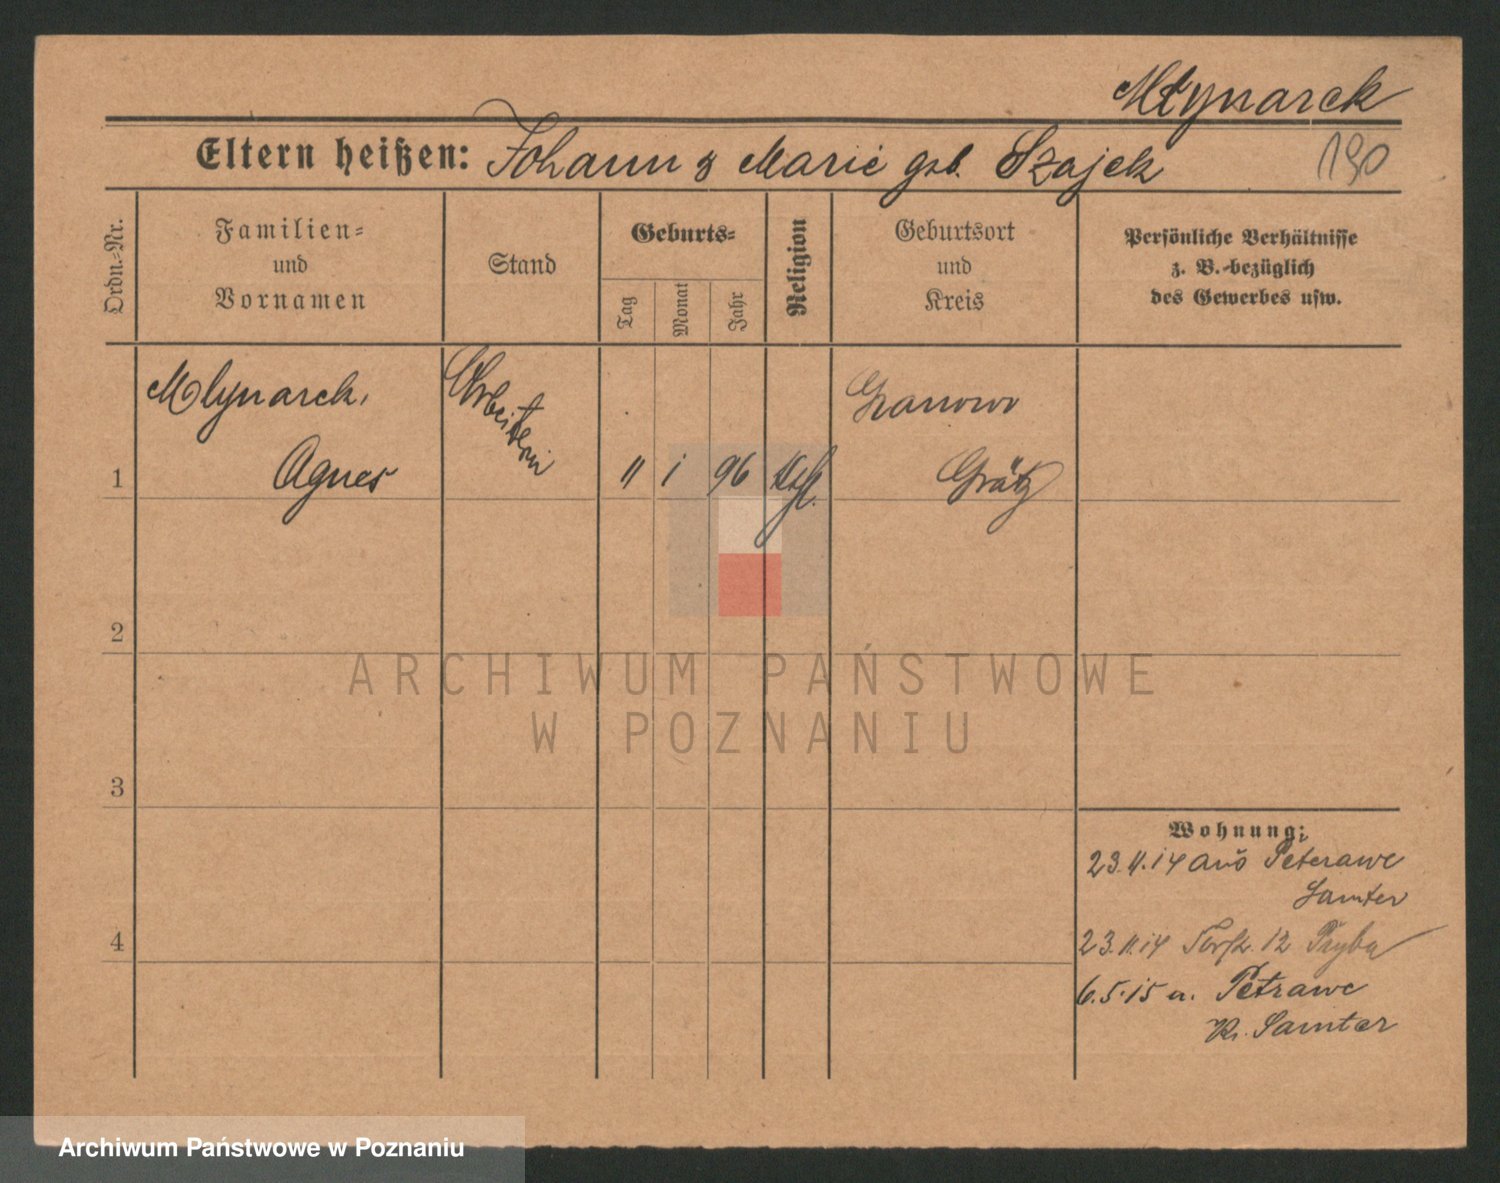 Młynarek
Eltern heißen: Johann & Marie geb. Szajek
190
Ordn.-Nr.
Familien-
und
Vornamen
Stand
Geburts-
Tag
Monat
Jahr
Religion
Geburtsort
und
Kreis
Persönliche Verhältnisse
z. B. bezüglich
des Gewerbes usw.
Mlynarek,
Agnes
Arbeiterin
1
11 1 96 Kth.
Granowo
Grätz
2
ARCHIWUM PAŃSTWOWE
W POZNANIU
3
Wohnung:
23.11.14 aus Peterawe
Samter
4
23.11.14 12 Pryba
6.5.15 n. Petrawe
Kr. Samter
Archiwum Państwowe w Poznaniu